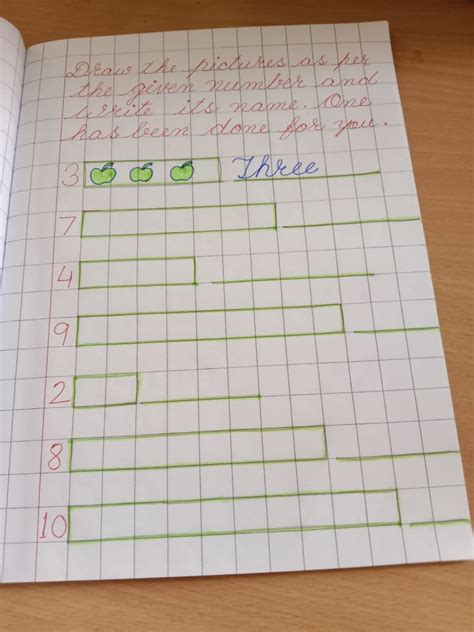 Draw the pictures as per
the given number and
write its name. One
has been done for you.
3 Three
7
4
9
2
8
10